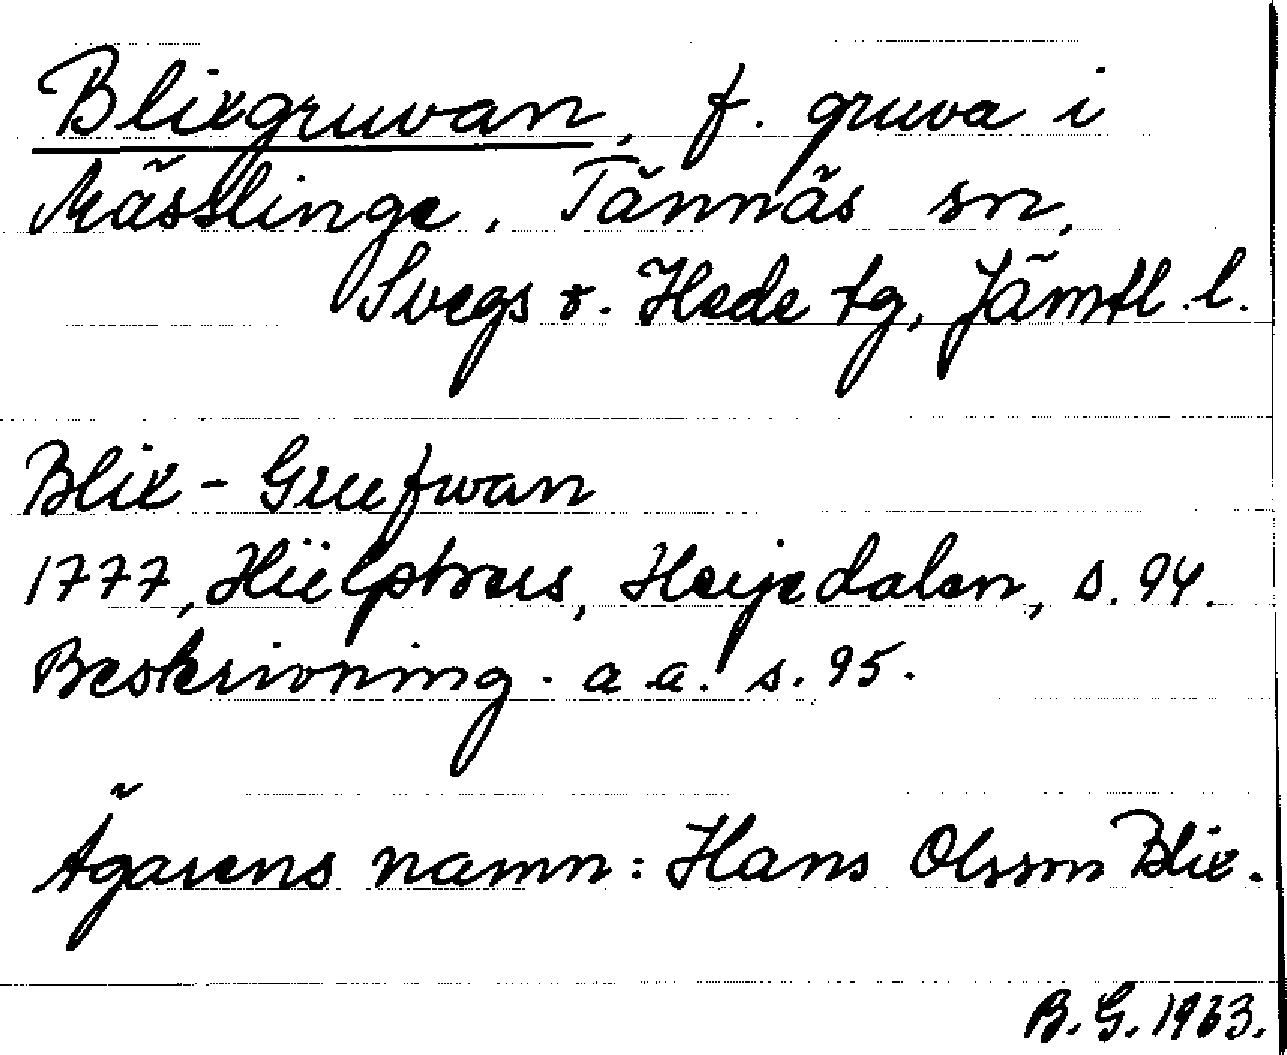 Blixgruvan, f. gruva i
Mässlinge, Tännäs sn,
Svegs o. Hede tg, Jämtl. l.
Blix-Grufwan
1777, Hülphers, Herjedalen, s. 94.
Beskrivning. a a. s. 95.
Ägarens namn: Hans Olsson Blix.
B. G. 1963.